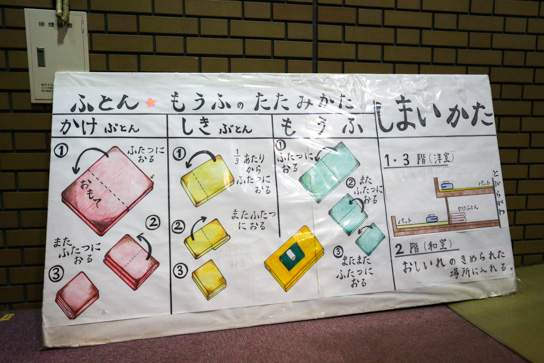 ふとん もうふのたたみかた
しまいかた
かけぶとん
①
ふたつに
おる
おもて
②
またふたつに
おる
③
しきぶとん
①
1/3あたり
から
ふたつに
おる
②
またふたつ
におる
③
もうふ
①
ふたつに
おる
②
また
ふたつに
おる
③
またまた
ふたつに
おる
1・3階(洋室)
2階(和室)
おしいれのきめられた
場所に入れる。